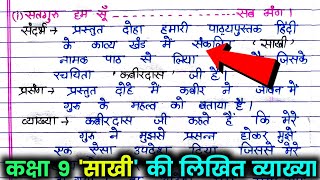 (i) सतगुरु हम सूँ सब अंग।
संदर्भ → प्रस्तुत दोहा हमारी पाठ्यपुस्तक हिंदी
के काव्य खंड में संकलित 'साखी'
नामक पाठ से लिया है जिसके
रचयिता 'कबीरदास' जी हैं।
प्रसंग → प्रस्तुत दोहे में कबीर ने जीवन में
गुरु के महत्व को बताया है।
व्याख्या → कबीरदास जी कहते हैं कि मेरे
गुरु ने मुझसे प्रसन्न होकर मुझे
एक ऐसा उपदेश दिया जिससे मेरे
कक्षा 9 'साखी' की लिखित व्याख्या